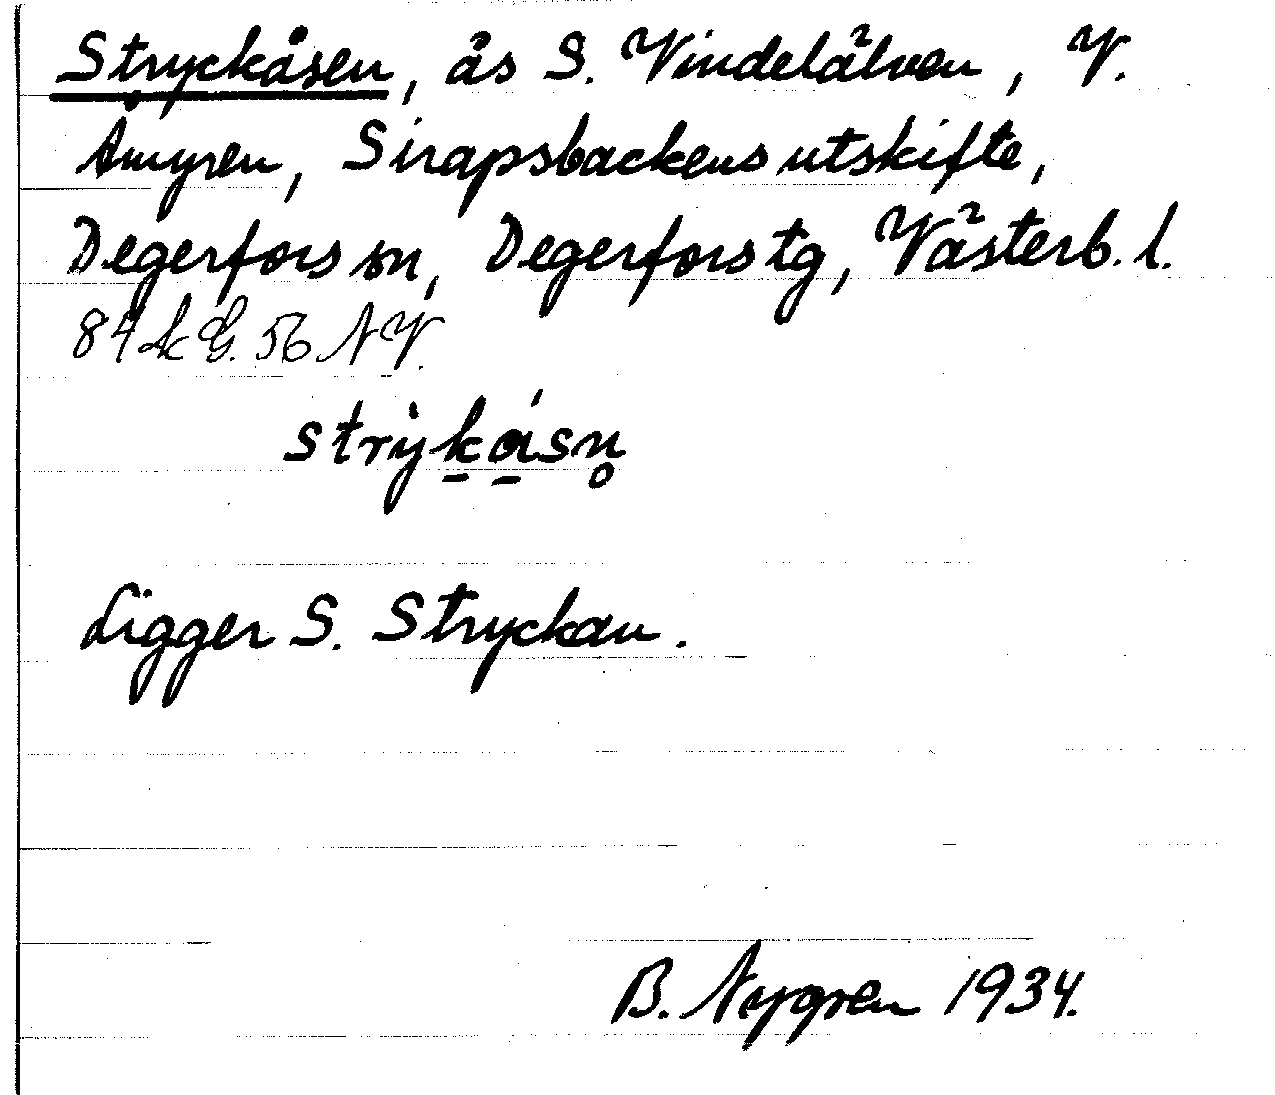 Stryckåsen, ås S. Vindelälven, V.
Åmyren, Sirapsbackens utskifte,
Degerfors sn, Degerfors tg, Västerb. l.
84 Ak G. 56 NV.
strỳkásn̥
Ligger S. Stryckau.
B. Nygren 1934.